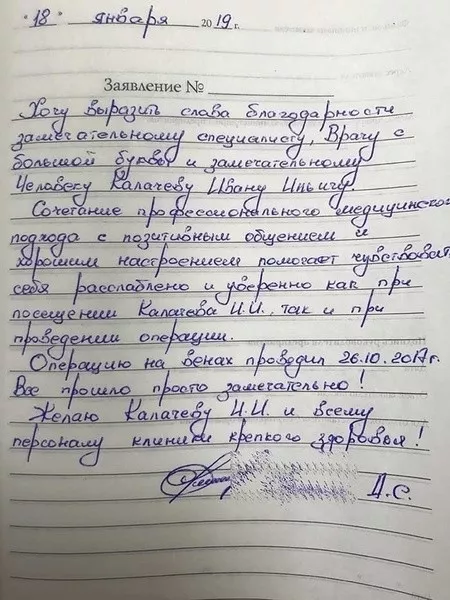 "18" января 2019 г.
Заявление №
Хочу выразить слава благодарности
замечательному специалисту, Врачу с
большой буквы и замечательному
Человеку Калачеву Ивану Ильичу.
Сочетание професионального медицинског
подхода с позитивным общением и
хорошим настроением помогает чувствоват
себя расслаблено и уверенно как при
посещении Калачева И.И., так и при
проведении операции.
Операцию на венах проводил 26.10.2017г.
Все прошло просто замечательно!
Желаю Калачеву И.И. и всему
персоналу клиники крепкого здоровья!
Д.С.